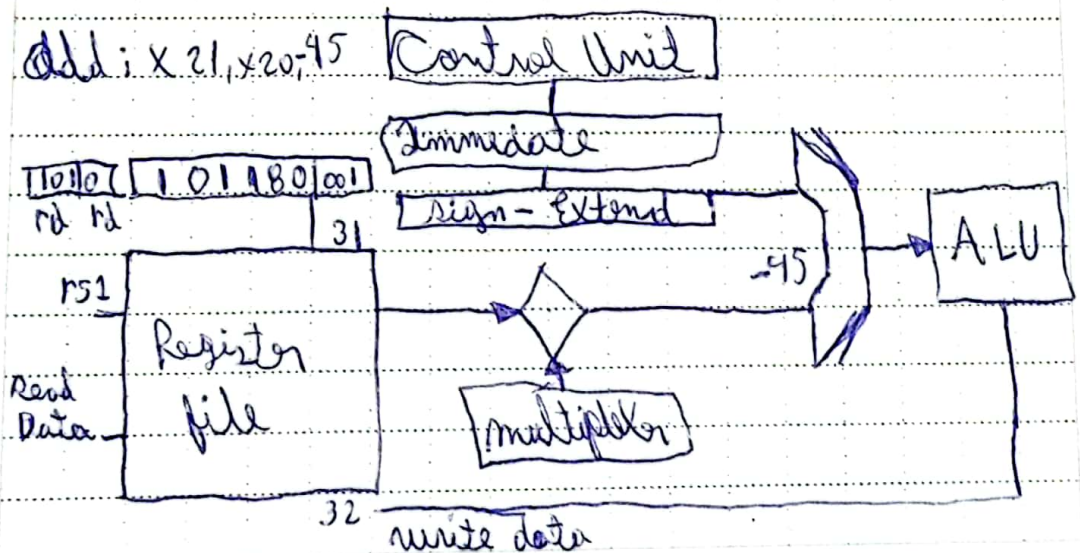 add: x21, x20, -45
Control Unit
Immedate
11010 101180 001
rd rd
sign-Extend
31
rs1
Register
file
Read
Data
multiplexer
-45
ALU
32
write data